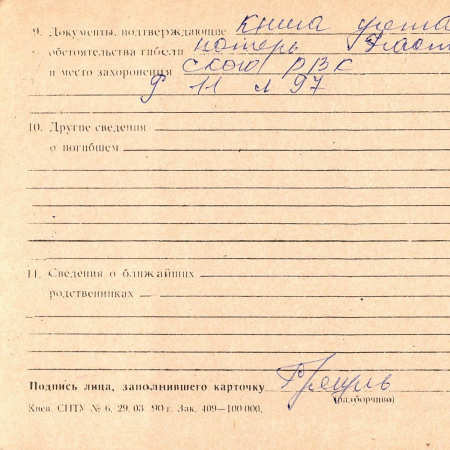 9. Документы, подтверждающие книга учета
обстоятельства гибели потерь
и место захоронения ского РВК
ф 11 л 97
10. Другие сведения
о погибшем
11. Сведения о ближайших
родственниках
Подпись лица, заполнившего карточку
(разборчиво)
Киев. СПТУ № 6. 29. 03. 90 г. Зак. 409—100 000.